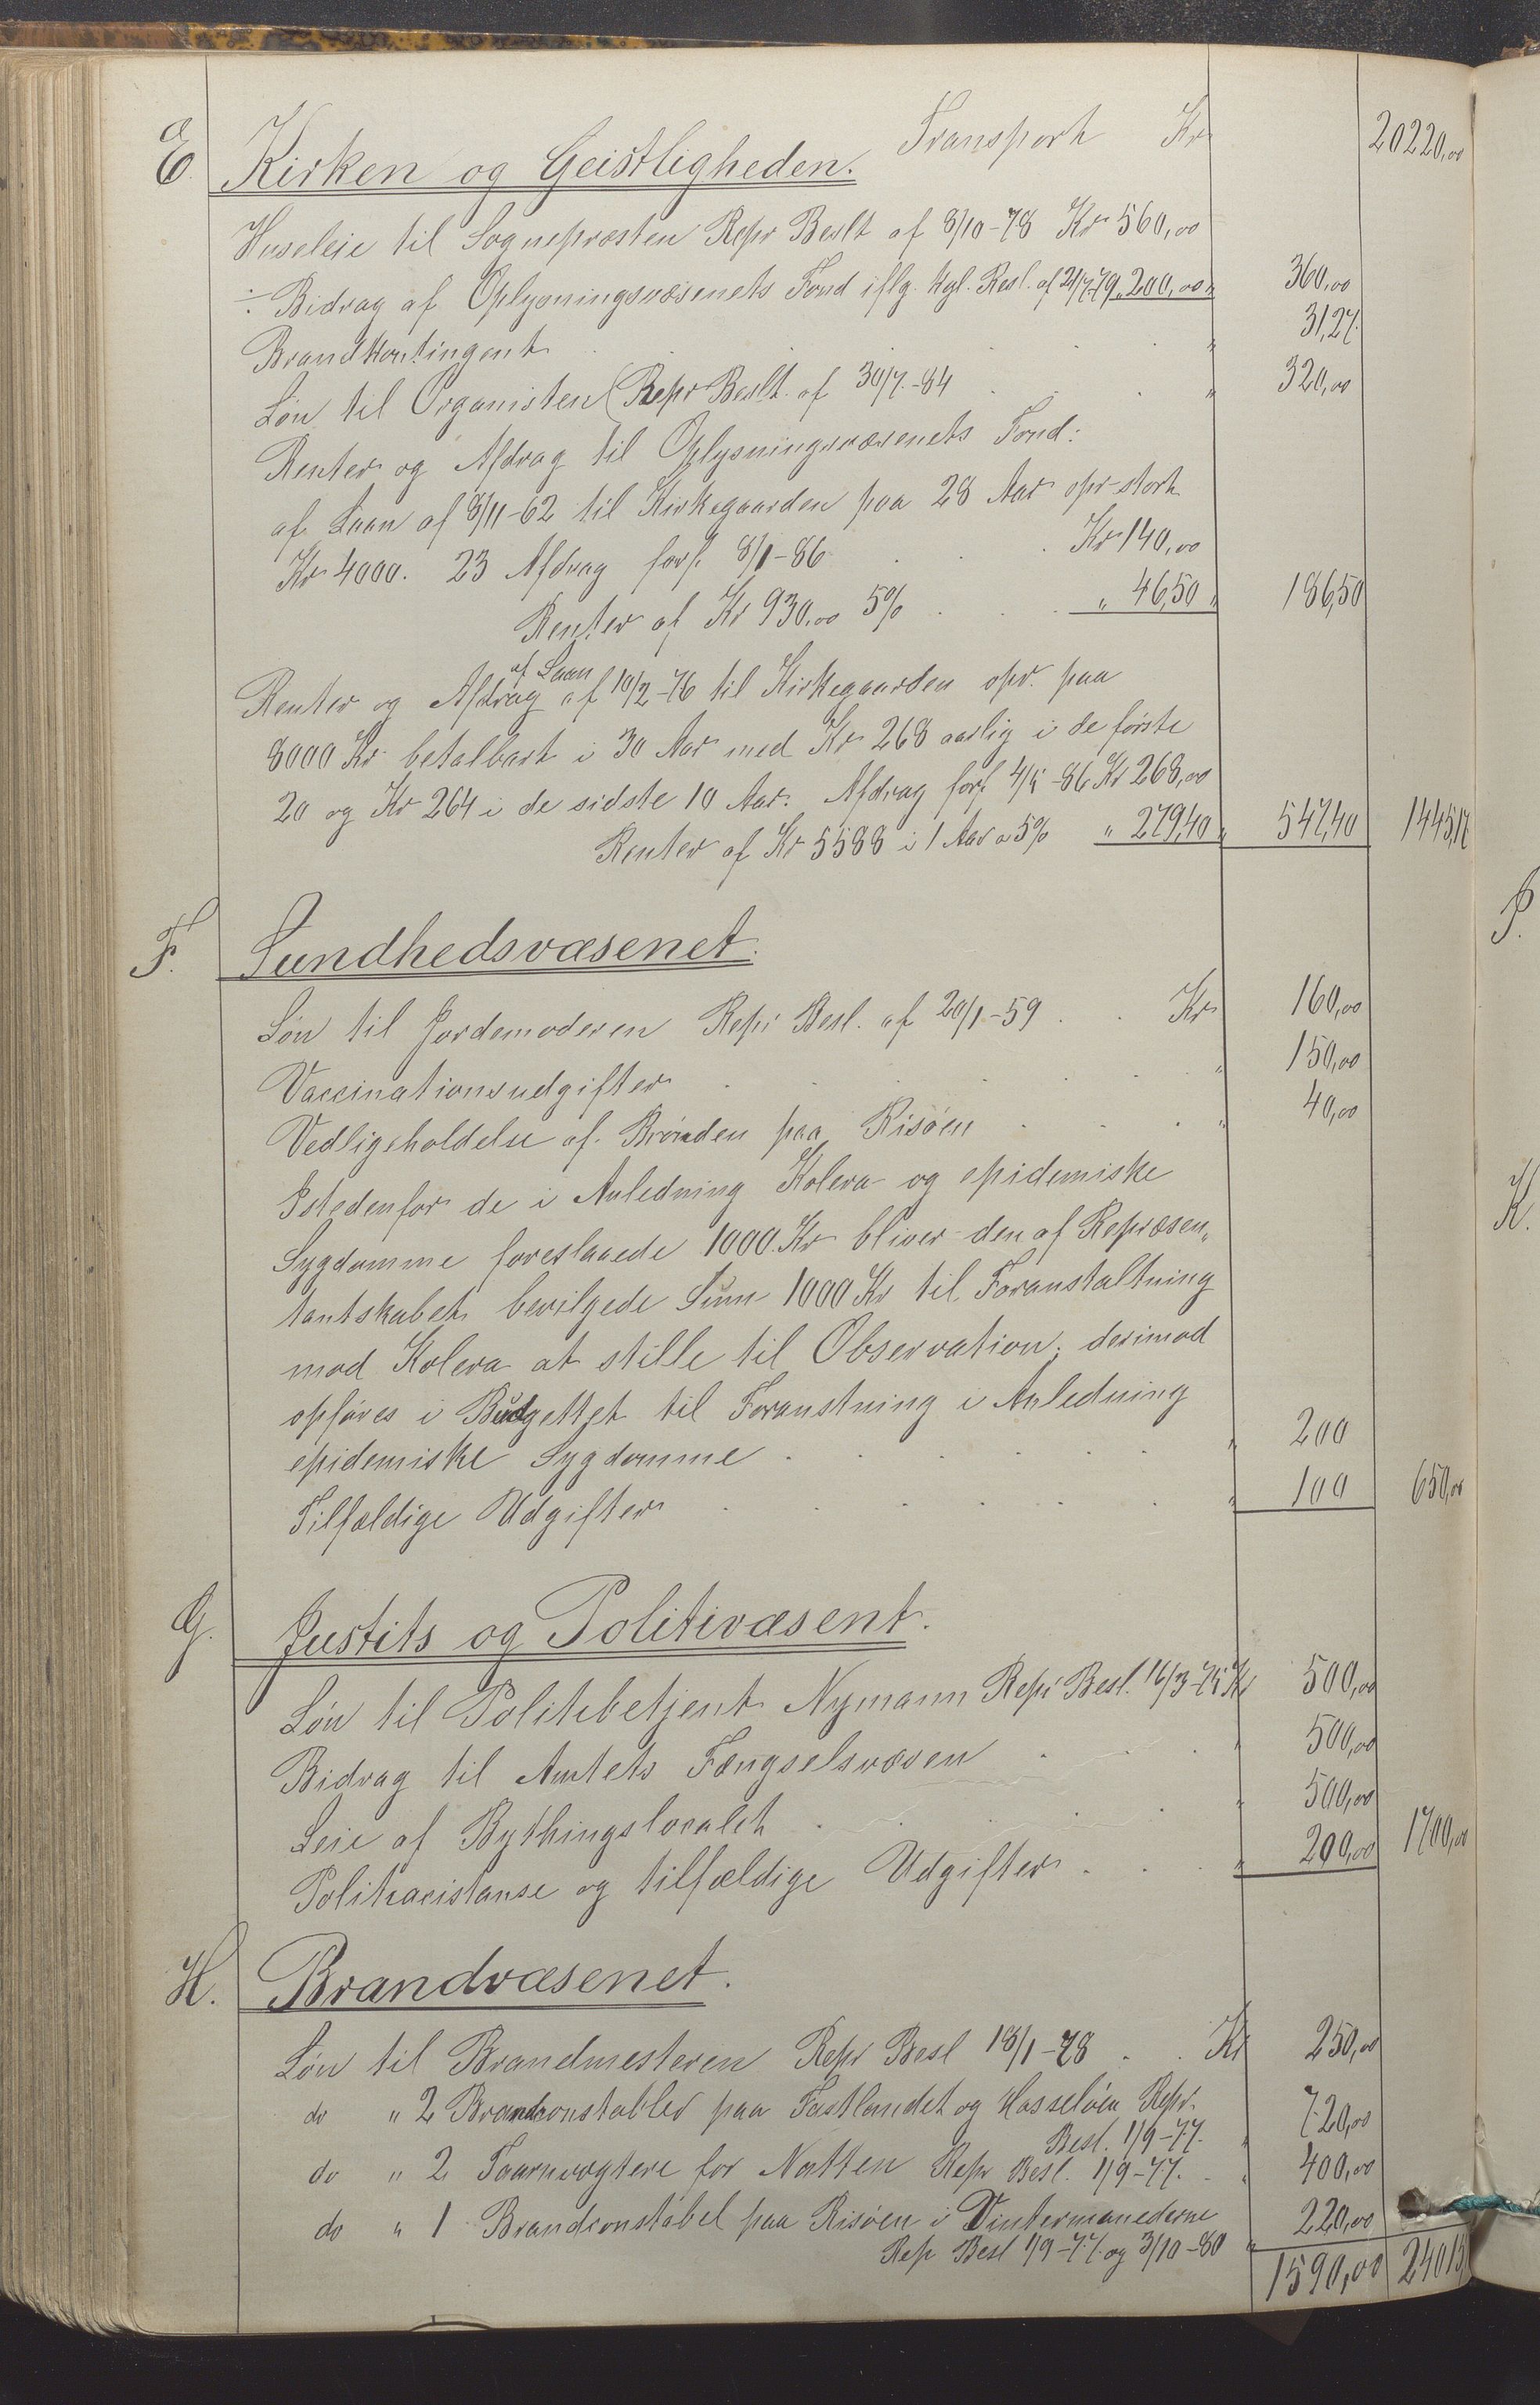 Transport Kr 20220,00
E Kirken og Geistligheden.
Huseleie til Sognepræsten Repr Beslt af 8/10-78 Kr 560,00
÷ Bidrag af Oplysningsvæsenets Fond iflg. Kgl. Resl. af 21/7-79 „ 200,00 „ 360,00
Brandkontingent „ 31,27
Løn til Organisten (Repr Beslt. af 30/7-84 „ 320,00
Renter og Afdrag til Oplysningsvæsenets Fond:
af Laan af 8/11-62 til Kirkegaarden paa 28 Aar opr stort
Kr 4000. 23 Afdrag forf. 8/1-86 Kr 140,00
Renter af Kr 930,00 5% „ 46,50 „ 186,50
af Laan
Renter og Afdrag af 10/2-76 til Kirkegaarden opr. paa
8000 Kr betalbart i 30 Aar med Kr 268 aarlig i de første
20 og Kr 264 i de sidste 10 Aar. Afdrag forf 4/5-86 Kr 268,00
Renter af Kr 5588 i 1 Aar a 5% „ 279,40 „ 547,40 1445,17
F. Sundhedsvæsenet.
Løn til Jordemoderen Repr Besl. af 20/1-59 Kr 160,00
Vaccinationsudgifter „ 150,00
Vedligeholdelse af Brønden paa Risøen „ 40,00
Istedenfor de i Anledning Kolera og epidemiske
Sygdomme foreslaaede 1000 Kr bliver den af Repræsen„
tantskabet bevilgede Sum 1000 Kr til Foranstaltning
mod Kolera at stille til Observation; derimod
opføres i Budgettet til Foranstning i Anledning
epidemiske Sygdomme „ 200
Tilfældige Udgifter „ 100 650,00
G. Justits og Politivæsent.
Løn til Politibetjent Nymann Repr Besl. 16/3-75 Kr 500,00
Bidrag til Amtets Fængselsvæsen „ 500,00
Leie af Bythingslocalet „ 500,00
Politiasistanse og tilfældige Udgifter „ 200,00 1700,00
H. Brandvæsenet.
Løn til Brandmesteren Repr Besl 18/1-78 Kr 250,00
do „ 2 Brandconstabler paa Fastlandet og Hasseløen Repr.
Besl. 1/9-77. „ 720,00
do „ 2 Taarnvogtere for Natten Repr Besl. 1/9-77. „ 400,00
do „ 1 Brandconstabel paa Risøen i Vintermanederne
Rep Besl 1/9-77 og 3/10-80 „ 220,00
1590,00 24015
P.
K.